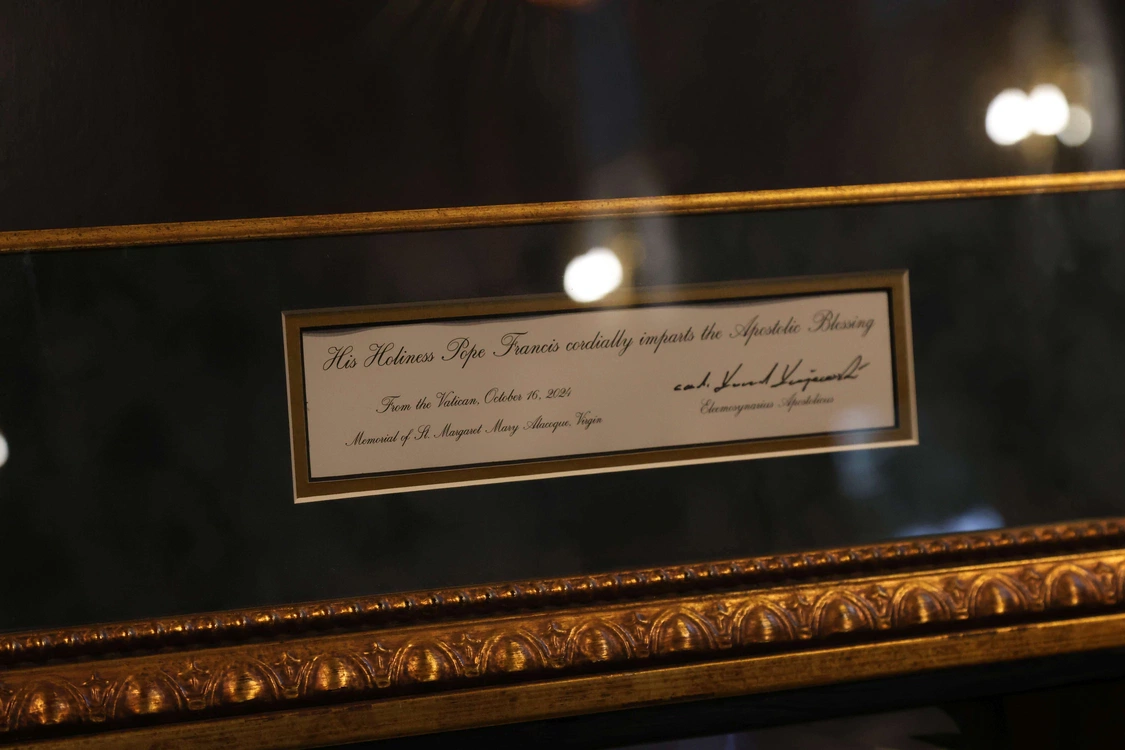 His Holiness Pope Francis cordially imparts the Apostolic Blessing
From the Vatican, October 16, 2024
Memorial of St. Margaret Mary Alacoque, Virgin
card.
Eleemosynarius Apostolicus